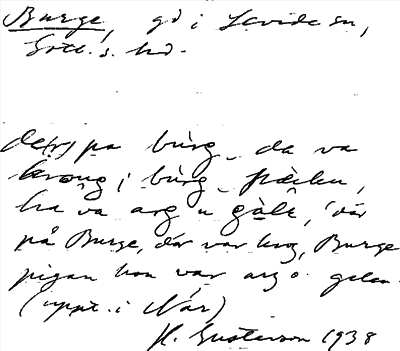 Burge, gd i Levide sn,
Gotl. s. hd.
de(t) pa burg, da va
krong i burg,
ha va arg u gale, 'där
på Burge, där var krog, Burge
pigan hon var arg o. galen.
(uppt. i När)
H. Gustavson 1938